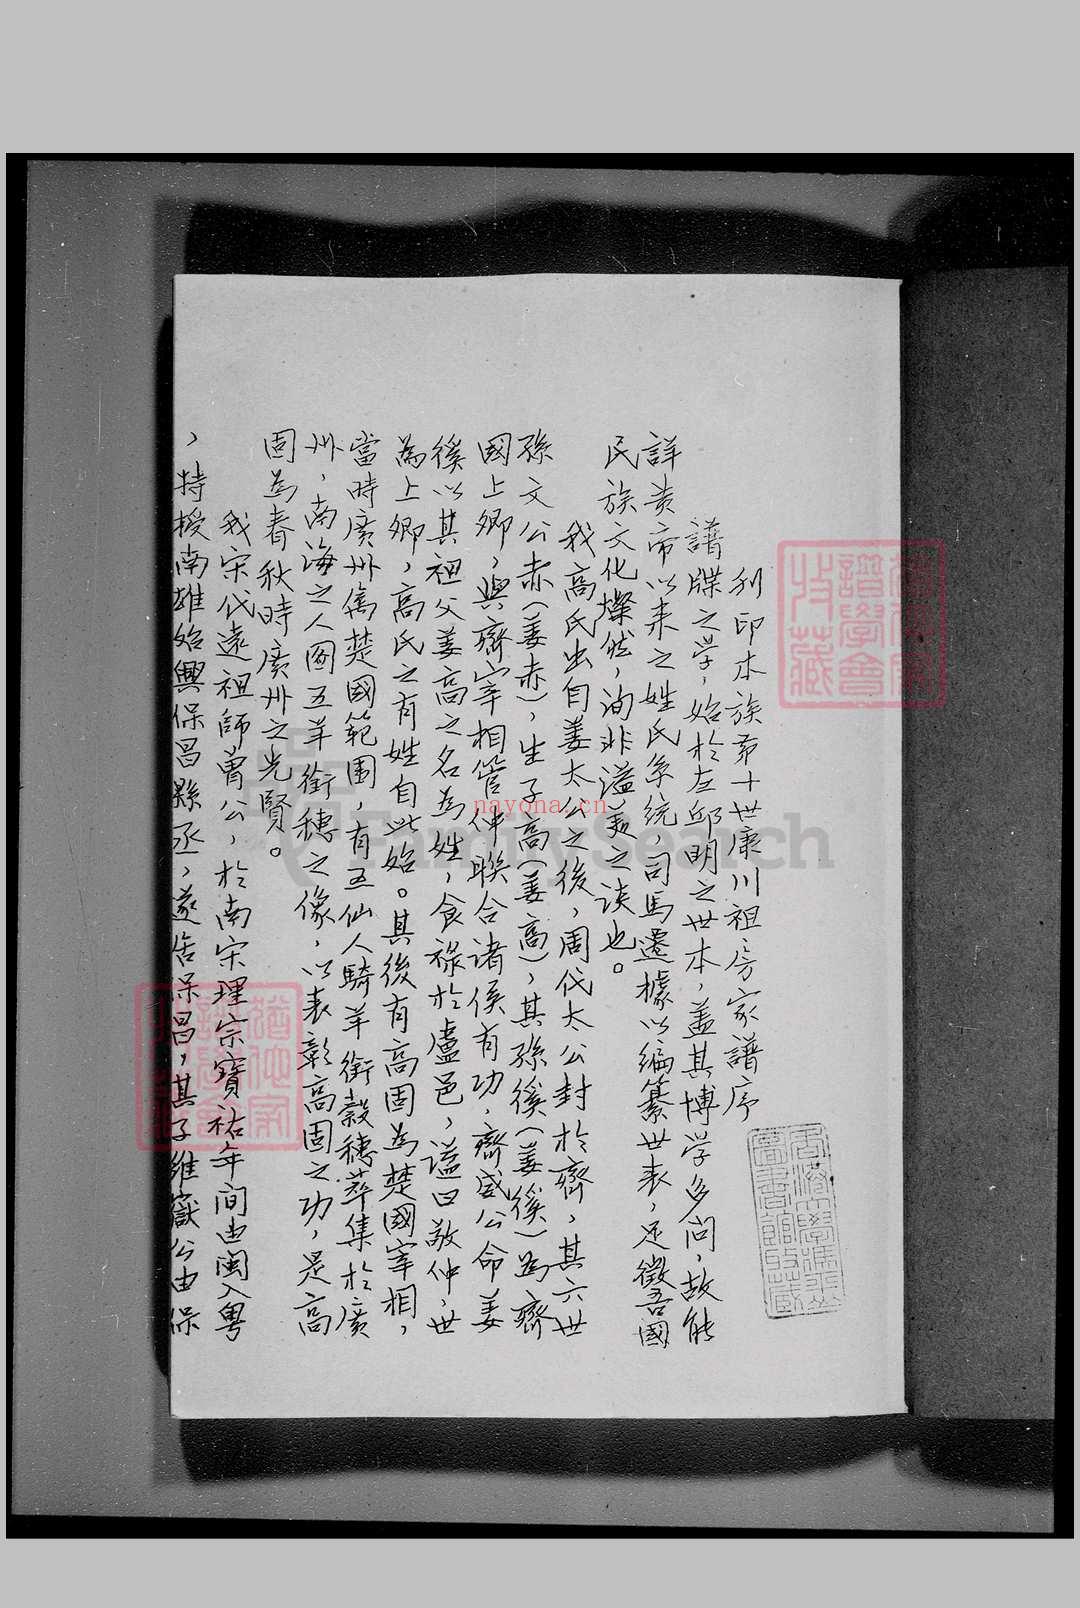 刊印本族第十世康川祖房家譜序
譜牒之学，始於左邱明之世本，盖其博学多闻，故能
詳黄帝以来之姓氏系統，司馬遷據以编纂世表，足徵吾國
民族文化燦然，洵非溢美之談也。
我高氏出自姜太公之後，周代太公封於齊，其六世
孫文公赤（姜赤），生子高（姜高），其孫傒（姜傒）為齊
國上卿，與齊宰相管仲联合诸侯有功，齊威公命姜
傒以其祖父姜高之名為姓，食禄於盧邑，谥曰敬仲，世
為上卿，高氏之有姓自此始。其後有高固為楚國宰相，
當時廣州属楚國範围，有五仙人騎羊銜穀穗萃集於廣
州，南海之人圖五羊銜穗之像，以表彰高固之功，是高
固為春秋時廣州之先賢。
我宋代遠祖師曾公，於南宋理宗寶祐年间由闽入粤
，特授南雄始興保昌縣丞，遂居保昌，其子維嶽公由保
nayona.cn
FamilySearch